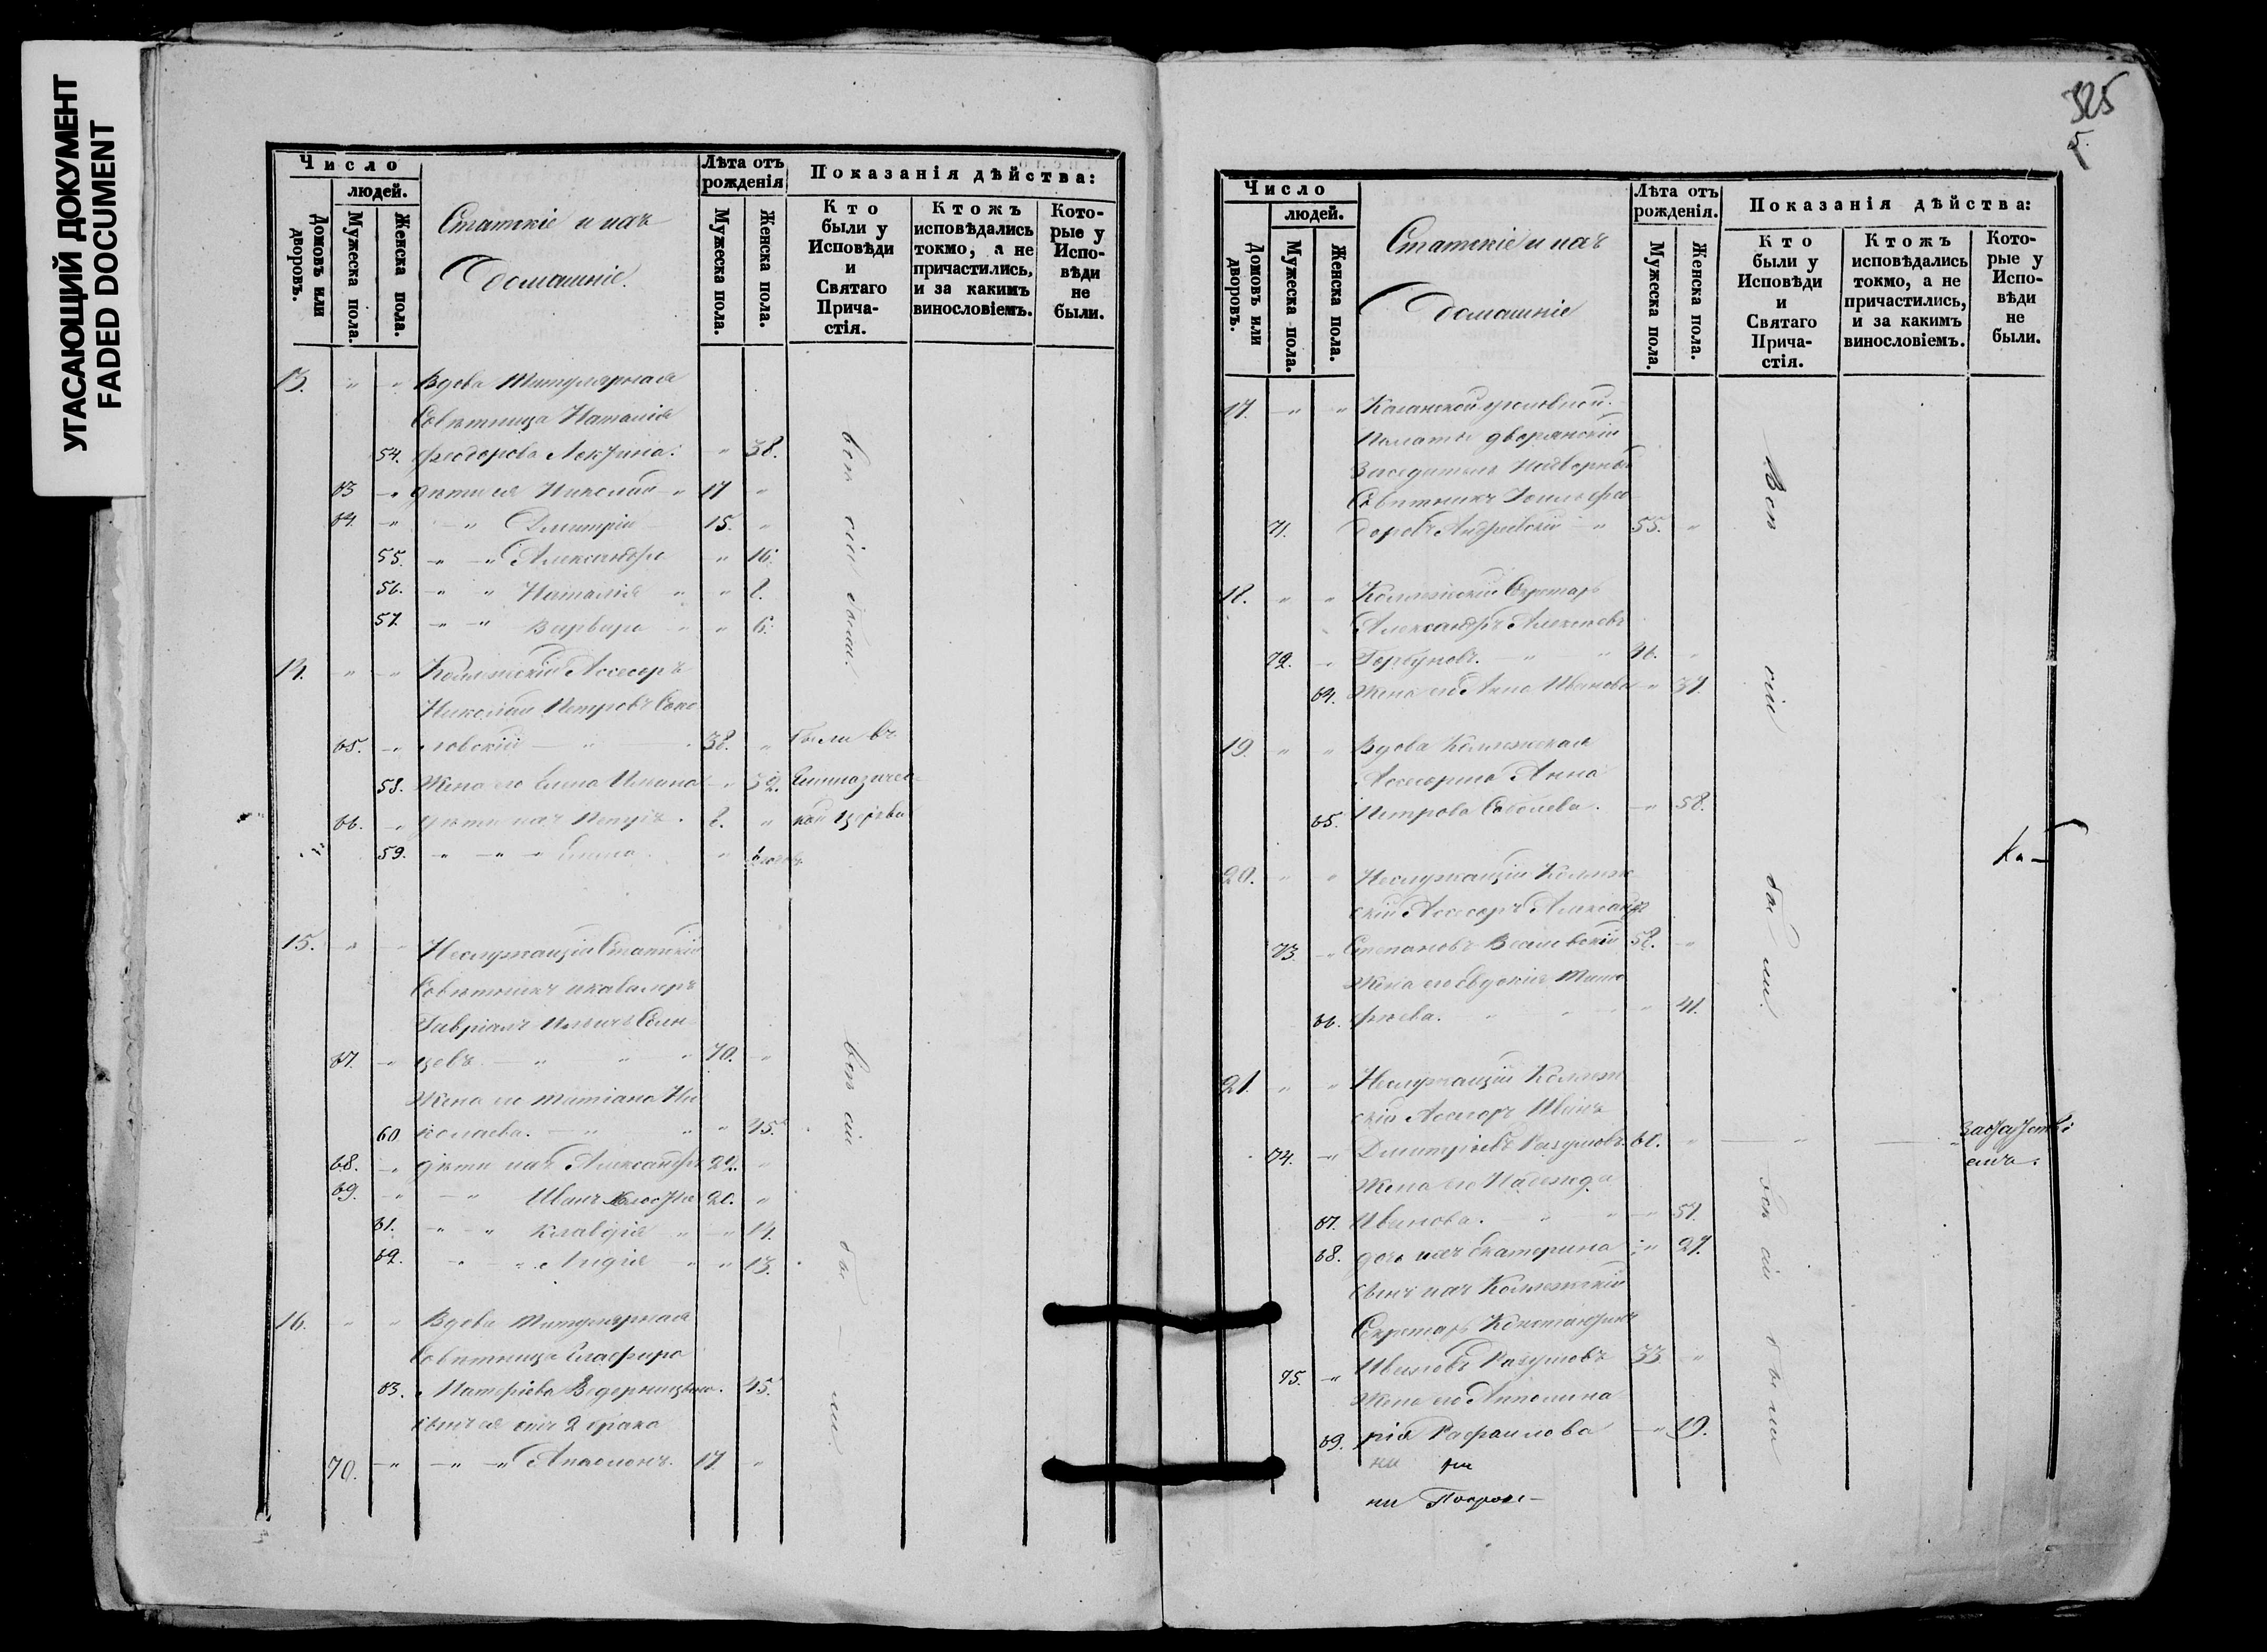 УГАСАЮЩИЙ ДОКУМЕНТ
FADED DOCUMENT
Число
людей.
Домовъ или дворовъ.
Мужеска пола.
Женска пола.
Статскіе и ихъ
Домашніе.
Лѣта отъ рожденія
Мужеска пола.
Женска пола.
Показанія дѣйства:
Кто были у Исповѣди и Святаго Прича-стія.
Ктожъ исповѣдались токмо, а не причастились, и за какимъ винословіемъ.
Кото-рые у Испо-вѣди не были.
13. " " Вдова Титулярная
Совѣтница Наталія
54. Феодорова " 38.
63 " дѣти ея Николай " 17 "
64. " " Дмитрій 15. "
55. " " Александра " 16.
56. " " Наталія " " 8.
57. " " Варвара " " 6.
вси сіи были.
14. " " Коллежскій Ассесоръ
Николай Петровъ Соко
65. " ловскій " 38. " были въ
58. Жена его Елена " 32. Гимназичес
66. " дѣти ихъ 8. " кой церкви
59. " " " Елена "
15. " " Неслужащій Статскій
Совѣтникъ и кавалеръ
Гавріилъ Солн
67. " цевъ " " " 70. "
Жена его Татіана Ни
60 колаева. " " " 45.
68. " дѣти ихъ Александръ 22. "
69. " " Иванъ 20. "
61. " " Клавдія " " 14.
62. " " Лидія " " 13.
вси сіи бы ли
16. " " Вдова Титулярная
Совѣтница Глафира
63. 45.
сынъ ея отъ 2 брака
70. " " " 17 "
325
5.
Число
людей.
Домовъ или дворовъ.
Мужеска пола.
Женска пола.
Статскіе и ихъ
Домашніе
Лѣта отъ рожденія.
Мужеска пола
Женска пола.
Показанія дѣйства:
Кто были у Исповѣди и Святаго Прича-стія.
Ктожъ исповѣдались токмо, а не причастились, и за какимъ винословіемъ.
Кото-рые у Испо-вѣди не были.
17. " " Казанской уголовной
Палаты дворянскій
Засѣдатель Надворный
Совѣтникъ Ѳео
71. доровъ Андреевскій " 55. "
18. " " Коллежскій Секретарь
Александръ Алексѣевъ
72. " Горбуновъ. " " 46. "
64. Жена его Анна Иванова " 37.
19 " " Вдова Коллежская
Ассесорша Анна
65. Петрова Соболева. " 58.
20. " " Неслужащій Коллеж
скій Ассесоръ Александръ
73. " Степановъ 52. "
Жена его Евдокія Тимо
66. фѣева. " " " " 41.
Вси сіи бы ли.
Ка-
21. " " Неслужащій Коллеж
скій Ассесоръ Иванъ
74. " Дмитріевъ Разумовъ 60. " "
Жена его Надежда
67. Иванова. " " " 57.
68. дочь ихъ Екатерина " 27.
сынъ ихъ Коллежскій
Секретарь Константинъ
75. " Ивановъ Разумовъ 33 "
Жена его Апполина
69. рія Рафаилова " 19.
вси сіи были
ни